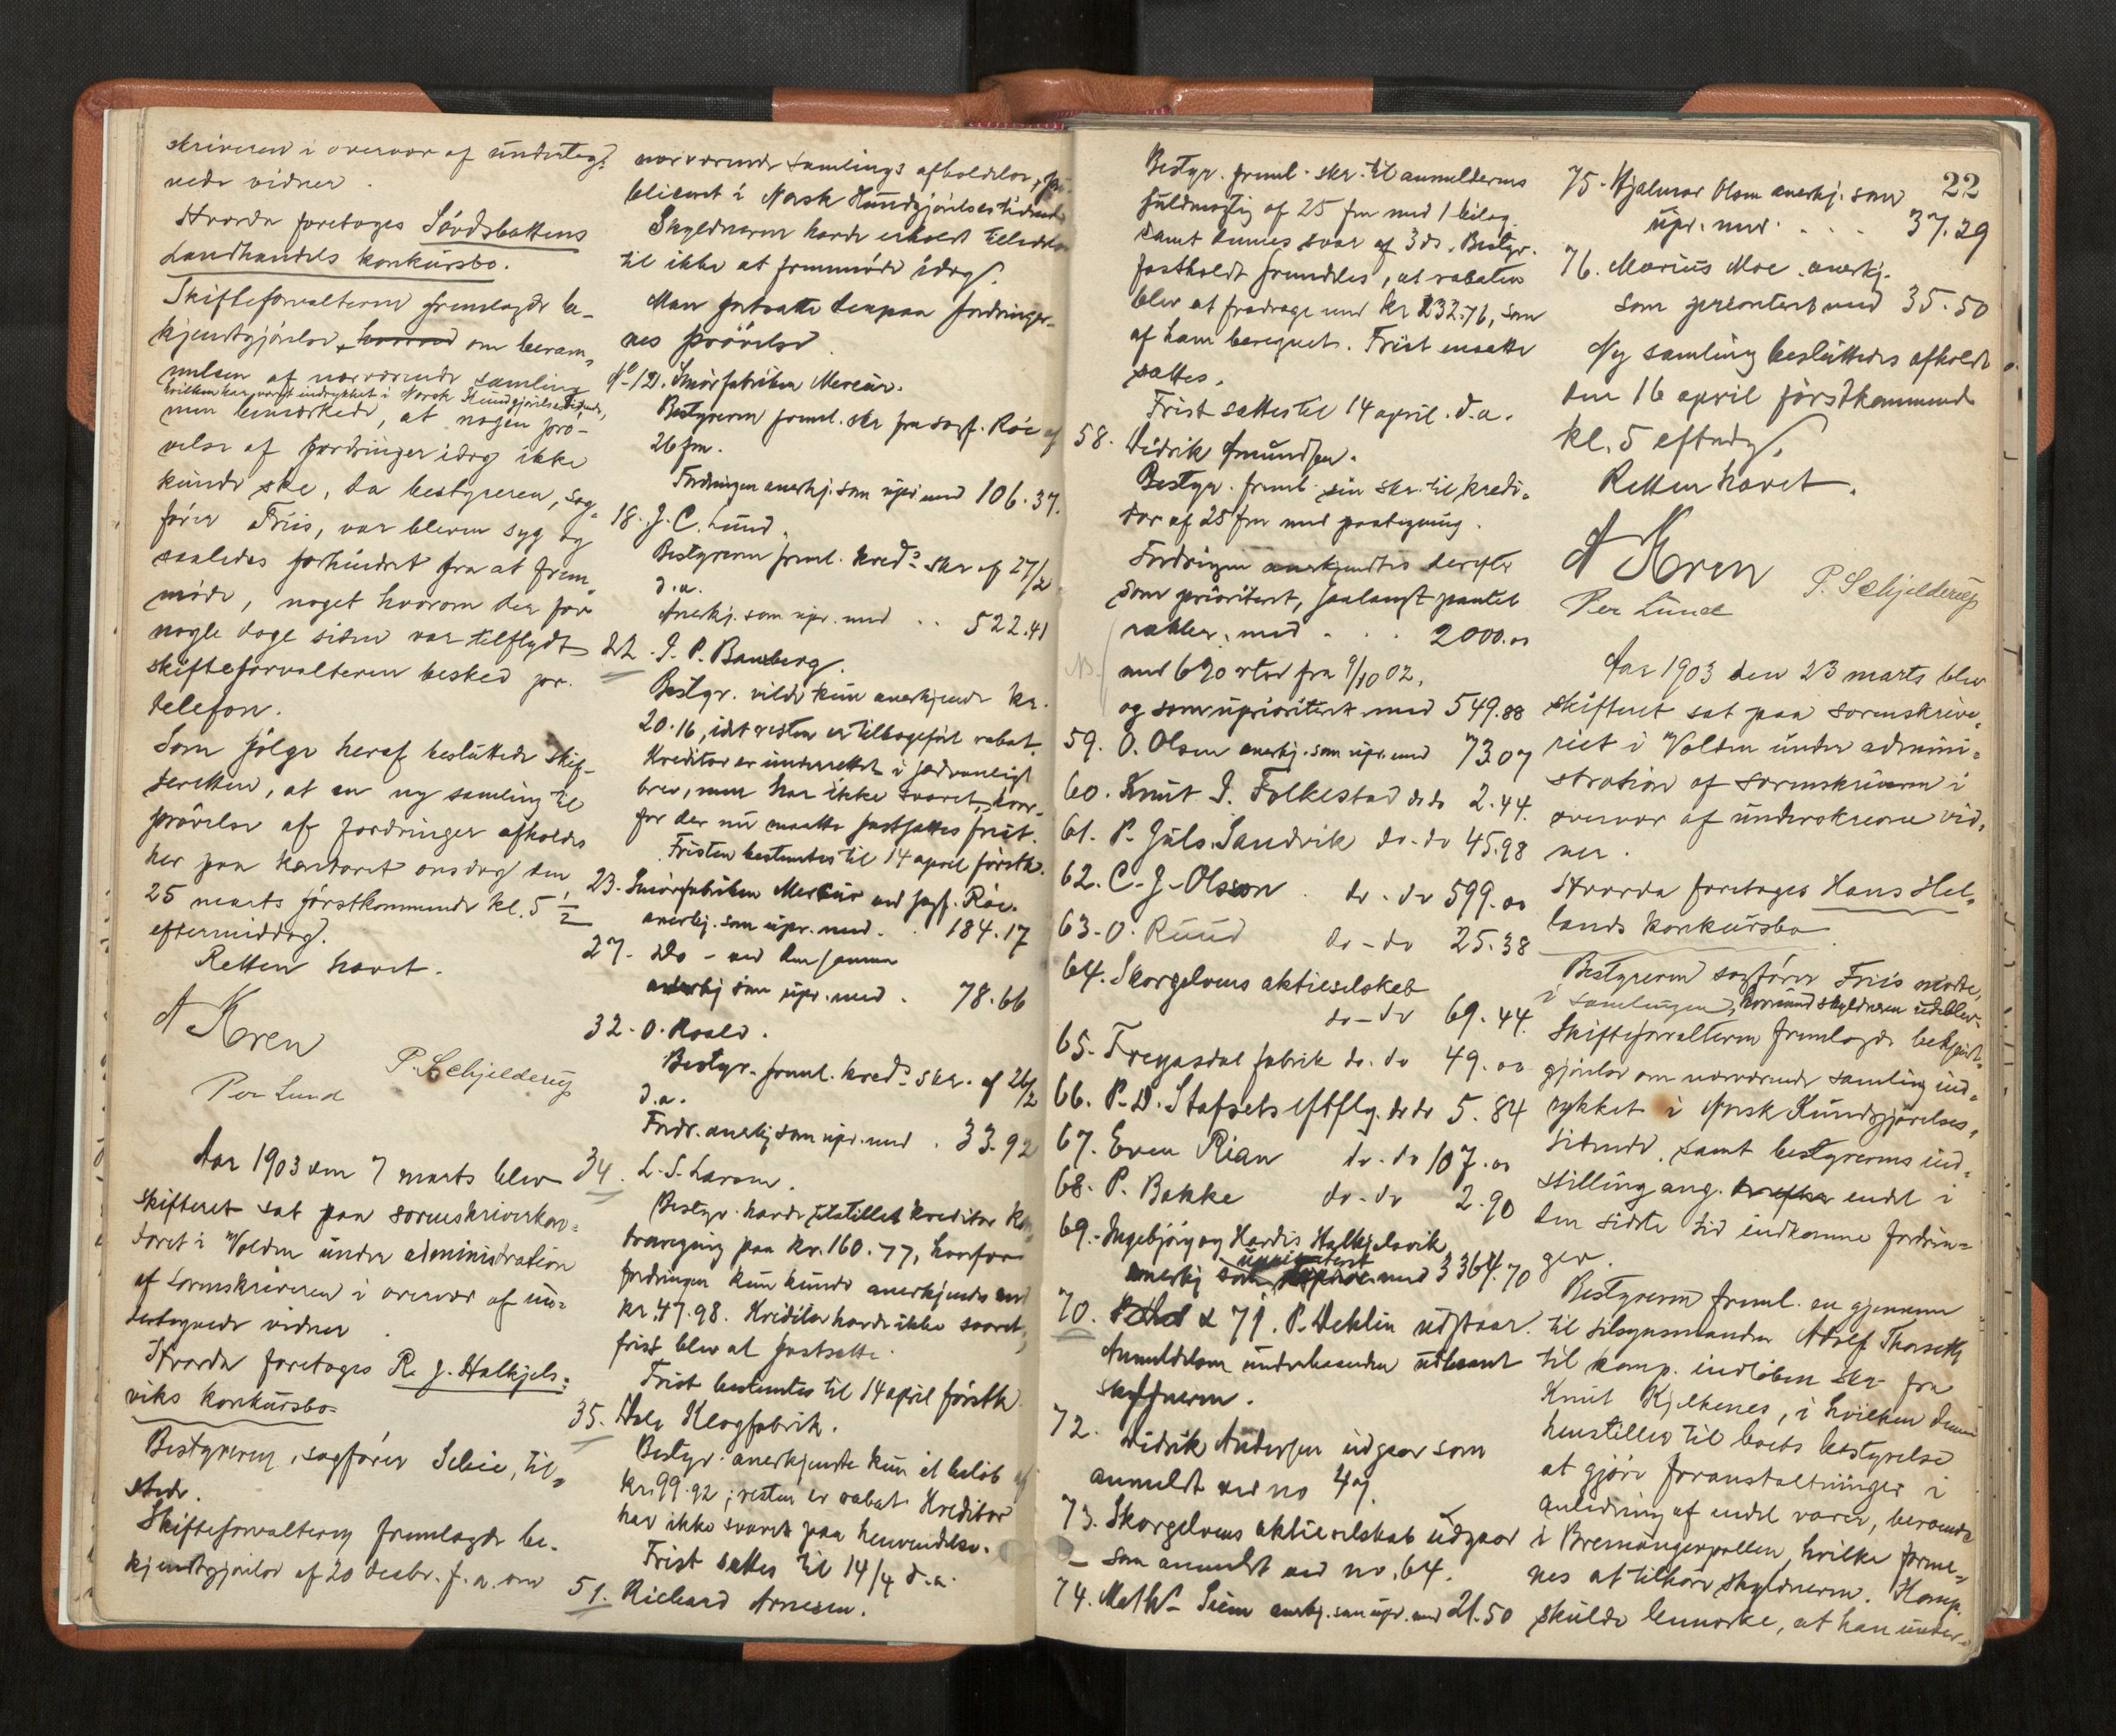 skriveren i overvær af underteg-
nede vidner.
Hvorda foretoges Søvdsbottens
Landhandels konkursbo.
Skifteforvalteren fremlagde be-
kjendtgjørelse, hvorved om beram-
melsen af nærværende samling
hvilken har været indrykket i Norsk Kundgjørelsestidende,
men bemærkede, at nogen prø-
velse af fordringer idag ikke
kunde ske, da bestyreren, sag-
fører Friis, var bleven syg og
saaledes forhindret fra at frem-
møde, noget hvorom der for
nogle dage siden var tilflydt
skifteforvalteren besked pr.
telefon.
Som følge heraf besluttede skif-
teretten, at en ny samling til
prøvelse af fordringer afholdes
her paa kontoret onsdag den
25 marts førstkommende kl. 5 1/2
eftermiddag.
Retten hævet.
A Koren
P. Schjelderup
Per Lund
Aar 1903 den 7 marts blev
skifteret sat paa sorenskriverkon-
toret i Volden under administration
af sorenskriveren i overvær af un-
dertegnede vidner.
Hvorda foretoges R. J. Halkjels-
viks konkursbo.
Bestyreren, sagfører Schie, til-
stede.
Skifteforvalteren fremlagde be-
kjendtgjørelse af 20 decbr. f. a. om
nærværende samlings afholdelse, pu-
bliceret i Norsk Kundgjørelsestidende
Skyldneren havde erholdt tilladelse
til ikke at fremmøde idag.
Man fortsatte derpaa fordringer-
nes prøvelse.
No 12. Smørfabriken Mercur.
Bestyreren freml. skr fra sagf. Røe af
26 fm.
Fordringen anerkj. som upr. med 106.37.
18. J. C. Lund.
Bestyreren freml. kreds skr af 27/2
d.a.
Anerkj. som upr. med .. 522.41
22. J. P. Bamberg.
Bestyr. vilde kun anerkjende kr.
20.16, idet resten er tilbageført rabat.
Kreditor er underrettet i sedvanligt
brev, men har ikke svaret, hvor-
for der nu maatte fastsættes frist.
Fristen bestemtes til 14 april førstk.
23. Smørfabriken Mercur ved sagf. Røe.
anerkj. som upr. med . . 184.17
27. Do - ved den samme
anerkj som upr. med . 78.66
32. O. Roald.
Bestyr. freml. kreds skr. af 26/2
d.a.
Fordr. anerkj som upr. med . 33.92
34. L. S. Larsen.
Bestyr. havde tilstillet kreditor kon
traregning paa kr. 160.77, hvorfor
fordringen kun kunde anerkjendes med
kr. 47.98. Kreditor havde ikke svaret,
frist blev at fastsætte.
Frist bestemtes til 14 april førstk.
35. Dale Klogfabrik.
Bestyr. anerkjendte kun et beløb af
kr. 99.92; resten er rabat. Kreditor
har ikke svaret paa henvendelse.
Frist sættes til 14/4 d.a.
51. Richard Arnesen.
22
Bestyr. freml. skr. til anmelderens
fuldmægtig af 25 fm med 1 bilag
samt dennes svar af 3 ds. Bestyr.
fastholdt fremdeles, at rabaten
blev at fradrage med kr 232.76, som
af ham beregnet. Frist ansatte
sattes.
Frist sattes til 14 april. d.a.
58. Didrik Amundsen.
Bestyr. freml. sin skr. til kredi-
tor af 25 fm med paategning.
Fordringen anerkjendtes derefter
som prioritert, saalangt pantet
rækker, med . . . 2000.00
NB. med 6 % rter fra 9/10 02,
og som uprioritert med 549.88
59. O. Olsen anerkj. som upr. med 73.07
60. Knut I. Folkestad do do 2.44.
61. P. Juls. Sandvik do - do 45.98
62. C. J. Olsson . do - do 599.00
63. O. Ruud do - do 25.38
64. Skorgelvens aktieselskab
do - do 69.44.
65. Freyasdal fabrik do. do 49.00
66. P. D. Stafsets eftflg. do do 5.84
67. Even Rian do - do 107.00
68. P. Bakke do - do 2.90
69. Ingebjørg og Hardis Halkjelsvik
uprioritert
anerkj som med 3364.70
70. & 71. P. Deklin udstaar.
Anmeldelsen underhaanden udlaant
skyldneren.
72. Didrik Andersen udgaar som
anmeldt ved no 49.
73. Skorgelvens aktieselskab udgaar
- som anmeldt ved no. 64.
74. Maths Siem anerkj. som upr. med 21.50
75. Hjalmar Olsen anerkj. som
upr. med . . . 37.29
76. Marius Moe . anerkj.
som prioritert med 35.50
Ny samling besluttedes afholdt
den 16 april førstkommende
kl. 5 eftmdg.
Retten hævet.
A Koren
P. Schjelderup
Per Lund
Aar 1903 den 23 marts blev
skifteret sat paa sorenskrive-
riet i Volden under admini-
stration af sorenskriveren i
overvær af underskrevne vid-
ner.
Hvorda foretoges Hans Hel-
lands konkursbo
Bestyreren sagfører Friis mødte,
i samlingen, hvorimod skyldneren udeblev.
Skifteforvalteren fremlagde bekjendt-
gjørelse om nærværende samling ind-
rykket i Norsk Kundgjørelses-
tidende, samt bestyrerens ind-
stilling ang. endel i
den sidste tid indkomne fordrin-
ger.
Bestyreren freml. en gjennem
til tilsynsmanden Adolf Thorseth
til komp. indløben skr fra
Knut Kjelkenes, i hvilken denne
henstilles til boets bestyrelse
at gjøre foranstaltninger i
anledning af endel varer, beroende
i Bremangerpollen, hvilke forme-
nes at tilhøre skyldneren. Komp.
skulde bemærke, at han under-